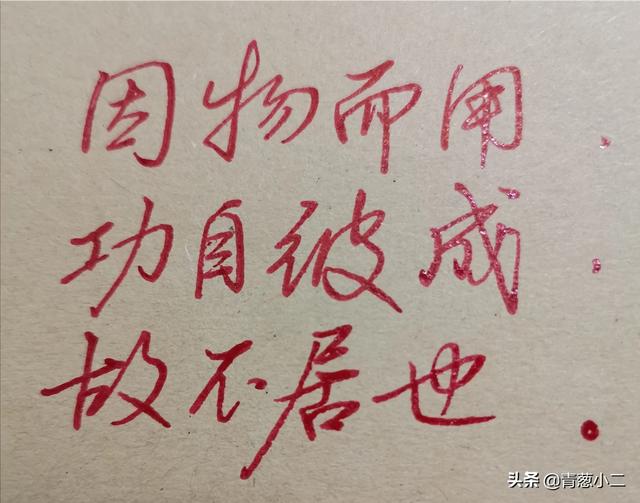 因物而用.
功自彼成.
故不居也.
头条 @青葱小二